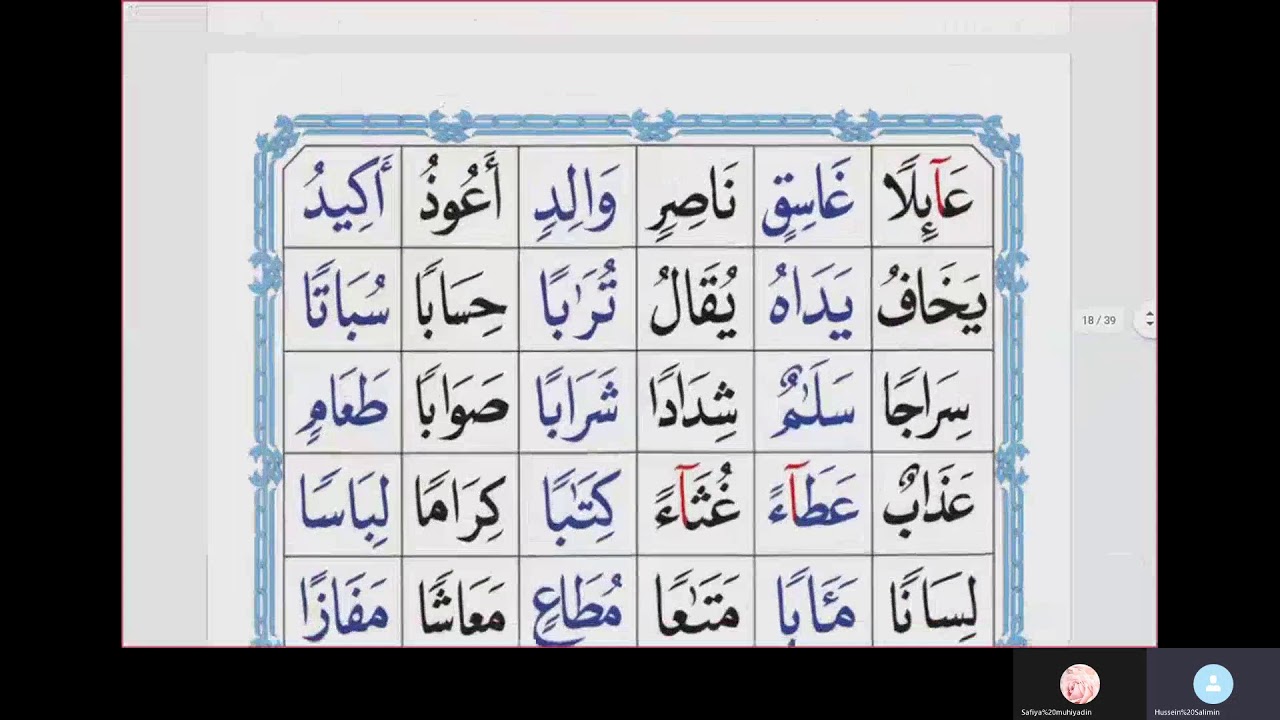 عَآئِلًا غَاسِقٍ نَاصِرٍ وَالِدٍ أَعُوذُ أَكِيدُ
يَخَافُ يَدَاهُ يُقَالُ تُرَٰبًا حِسَابًا سُبَاتًا
18 / 39
سِرَاجًا سَلَٰمٌ شِدَادًا شَرَابًا صَوَابًا طَعَامٍ
عَذَابٌ عَطَآءً غُثَآءً كِتَٰبًا كِرَامًا لِبَاسًا
لِسَانًا مَـَٔابًا مَتَٰعًا مُطَاعٍ مَعَاشًا مَفَازًا
Safiya%20muhiyadin
Hussein%20Salimin